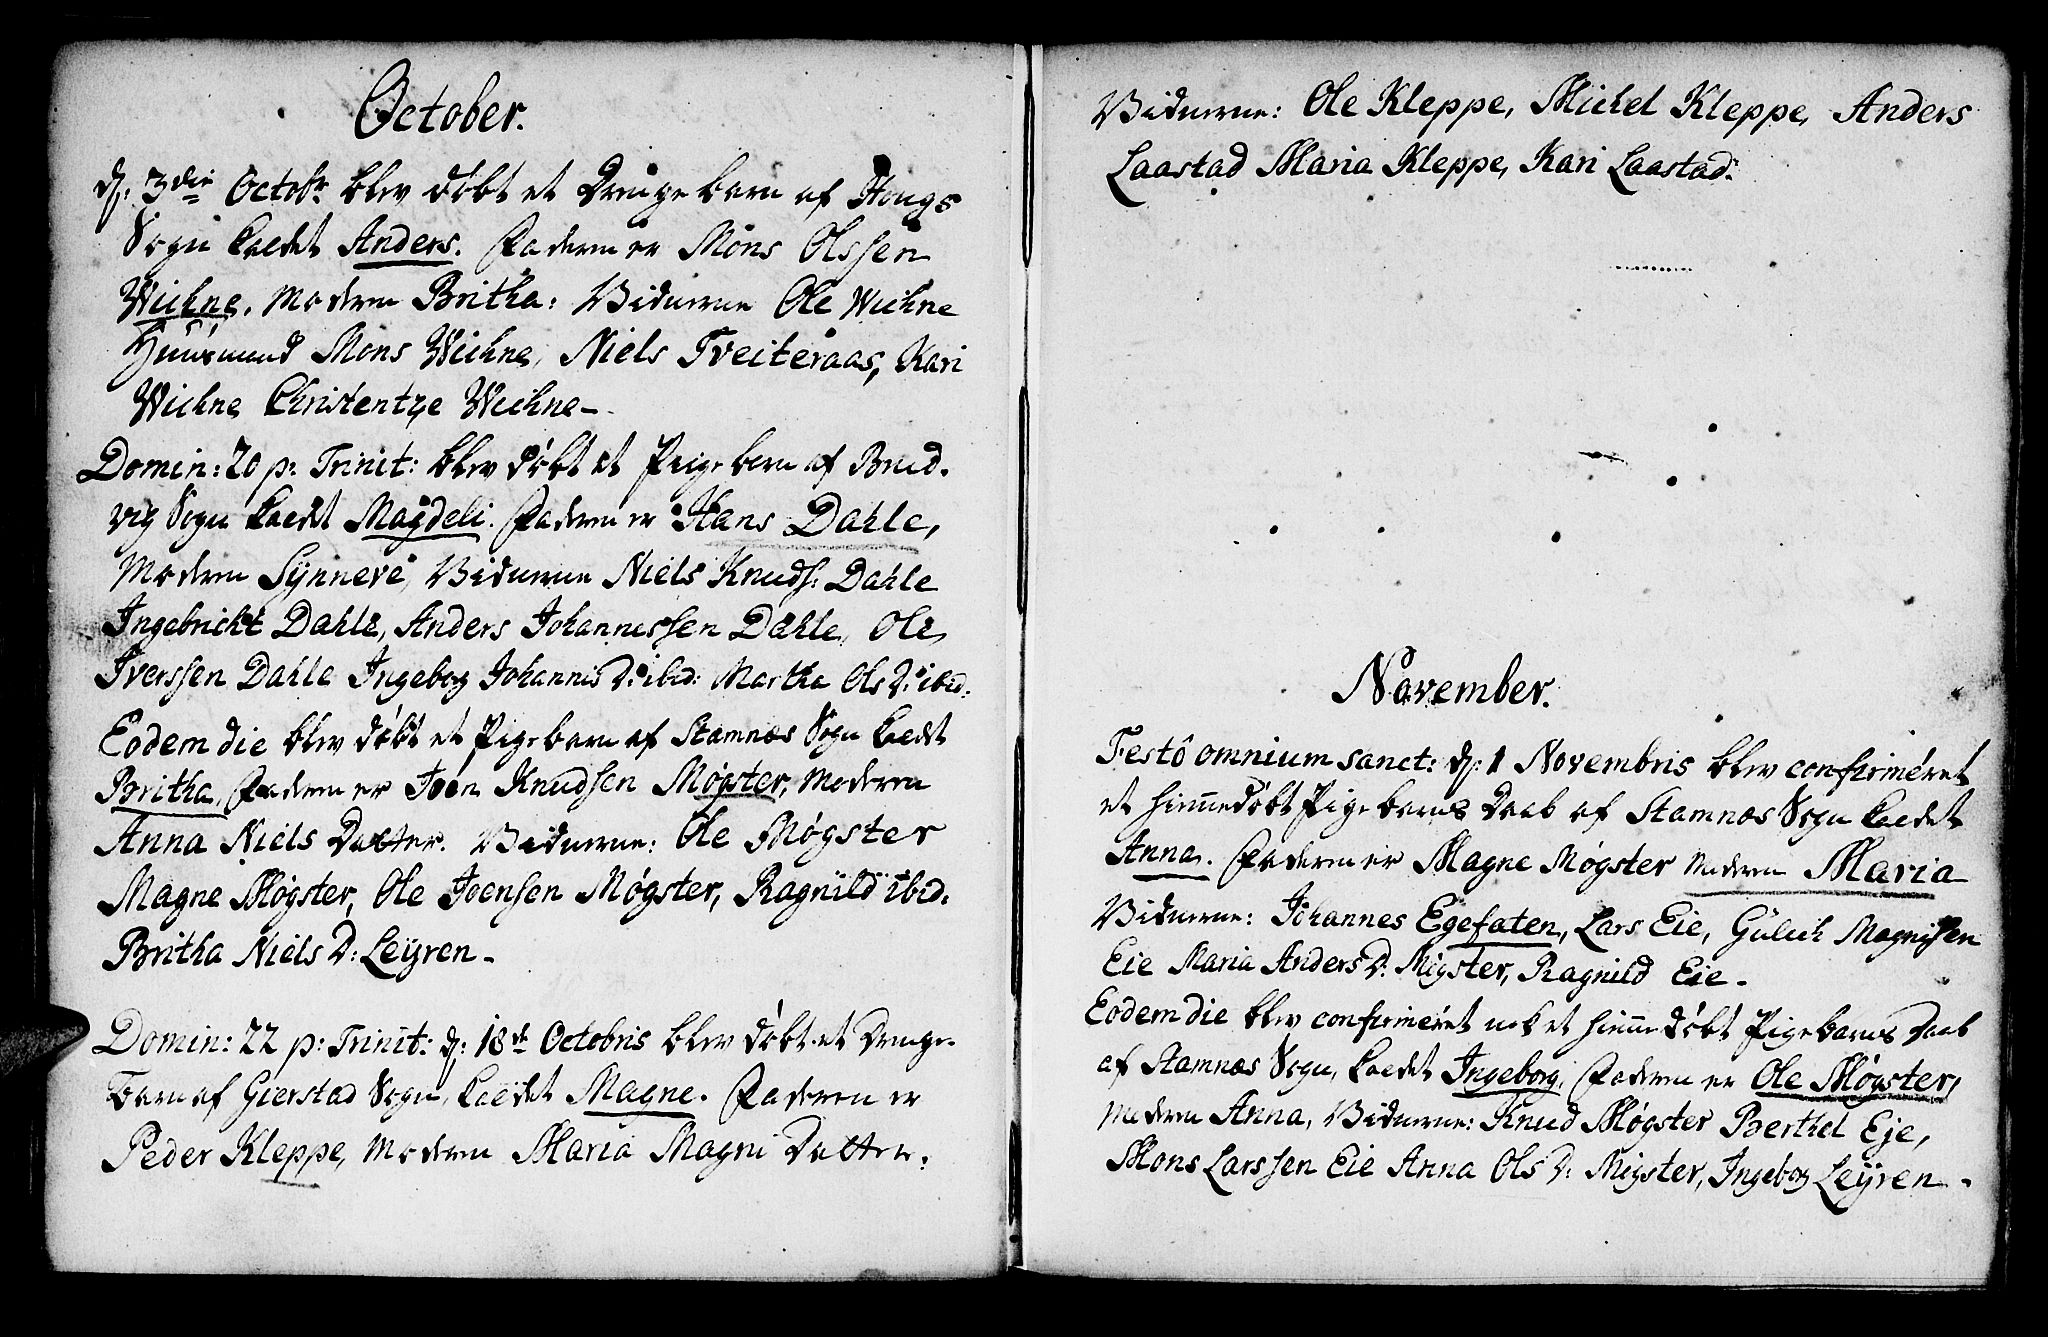 October.
d: 3die Octobr blev døbt et Drenge barn af Hougs
Sogn kaldet Anders. Faderen er Mons Olssen
Wichne, Moderen Britha: Vidnerne Ole Wichne
Huusmand Mons Wichne, Niels Tveiteraas, Kari
Wichne Christentze Wichne -
Domin: 20 p: Trinit: blev døbt et Pige barn af Brud-
vig Sogn kaldet Magdeli. Faderen er Hans Dahle,
Moderen Synneve, Vidnerne Niels Knuds: Dahle
Ingebricht Dahle, Anders Johannessen Dahle, Ole
Iverssen Dahle Ingeborg Johannis D: ibid: Martha Ols D: ibid.
Eodem die blev døbt et Pige barn af Stamnæs Sogn kaldt
Britha, Faderen er Joen Knudsen Møgster, Moderen
Anna Niels Datter. Vidnerne: Ole Møgster
Magne Møgster, Ole Joensen Møgster, Ragnild ibid.
Britha Niels D: Leyren -
Domin: 22 p: Trinit: d: 18de Octobris blev døbt et Drenge-
barn af Gierstad Sogn, kaldet Magne. Faderen er
Peder Kleppe, Moderen Maria Magni Datter.
Vidnerne: Ole Kleppe, Michel Kleppe, Anders
Laastad Maria Kleppe, Kari Laastad.
November.
Festô omnium sanct: d: 1 Novembris blev confirmeret
et hiemmedøbt Pige barns Daab af Stamnæs Sogn kaldet
Anna. Faderen er Magne Møgster Moderen Maria
Vidnerne: Johannes Egefaten, Lars Eie, Gulich Magnissen
Eie Maria Anders D: Migster, Ragnild Eie -
Eodem die blev confirmeret nok et hiemme døbt Pige barns Daab
af Stamnæs Sogn, kaldet Ingeborg. Faderen er Ole Møgster,
Moderen Anna, Vidnerne: Knud Møgster Berthel Eje,
Mons Larssen Eie Anna Ols D: Migster, Ingeborg Leyren -